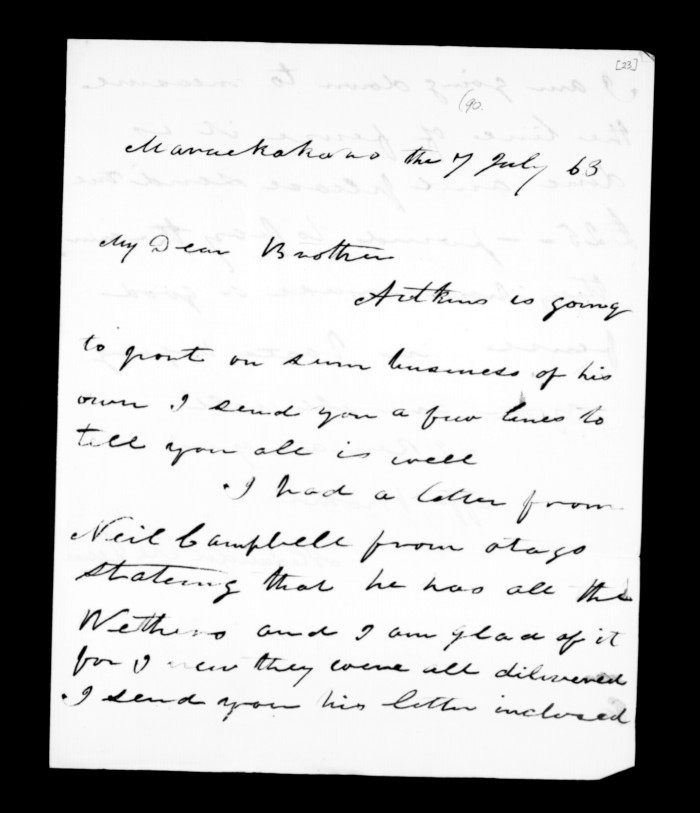 [23]
(90.
Maraekakaho the 7 July 63
My Dear Brother
Aitkins is going
to gont on sum business of his
own I send you a few lines to
tell you all is well
I had a letter from
Neil Campbell from otago
stateing that he has all the
Wethers and I am glad of it
for I new they were all dilivered
I send you his letter inclosed